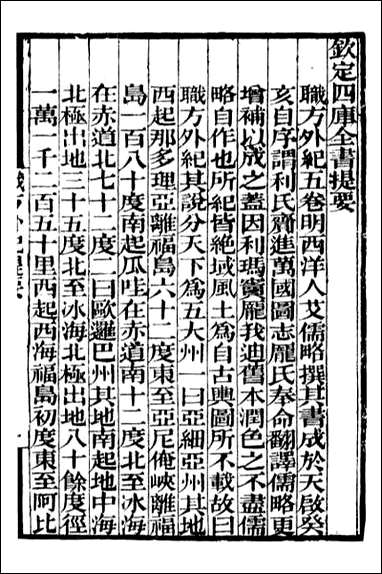 欽定四庫全書提要
職方外紀五卷明西洋人艾儒略撰其書成於天啟癸
亥自序謂利氏齎進萬國圖志龐氏奉命翻譯儒略更
增補以成之蓋因利瑪竇龐我迪舊本潤色之不盡儒
略自作也所紀皆絕域風土為自古輿圖所不載故曰
職方外紀其說分天下為五大州一曰亞細亞州其地
西起那多理亞離福島六十二度東至亞尼俺峽離福
島一百八十度南起瓜哇在赤道南十二度北至冰海
在赤道北七十二度二曰歐邏巴州其地南起地中海
北極出地三十五度北至冰海北極出地八十餘度徑
一萬一千二百五十里西起西海福島初度東至阿比
職方外紀提要